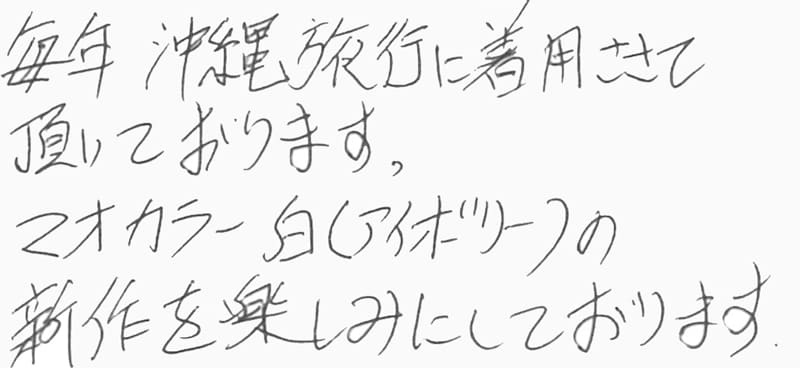 毎年 沖縄旅行に着用させて
頂いております。
マオカラー 白(アイボリー)の
新作を楽しみにしております.